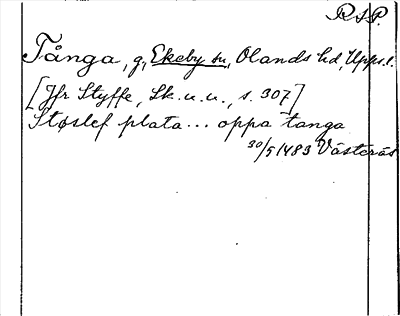 R.S.P.
Tånga, g, Ekeby sn, Olands hd, Upps. l.
[Jfr Styffe, Sk. u. u., s. 307]
Støslef plata... oppa tanga
30/5 1483 Västerås